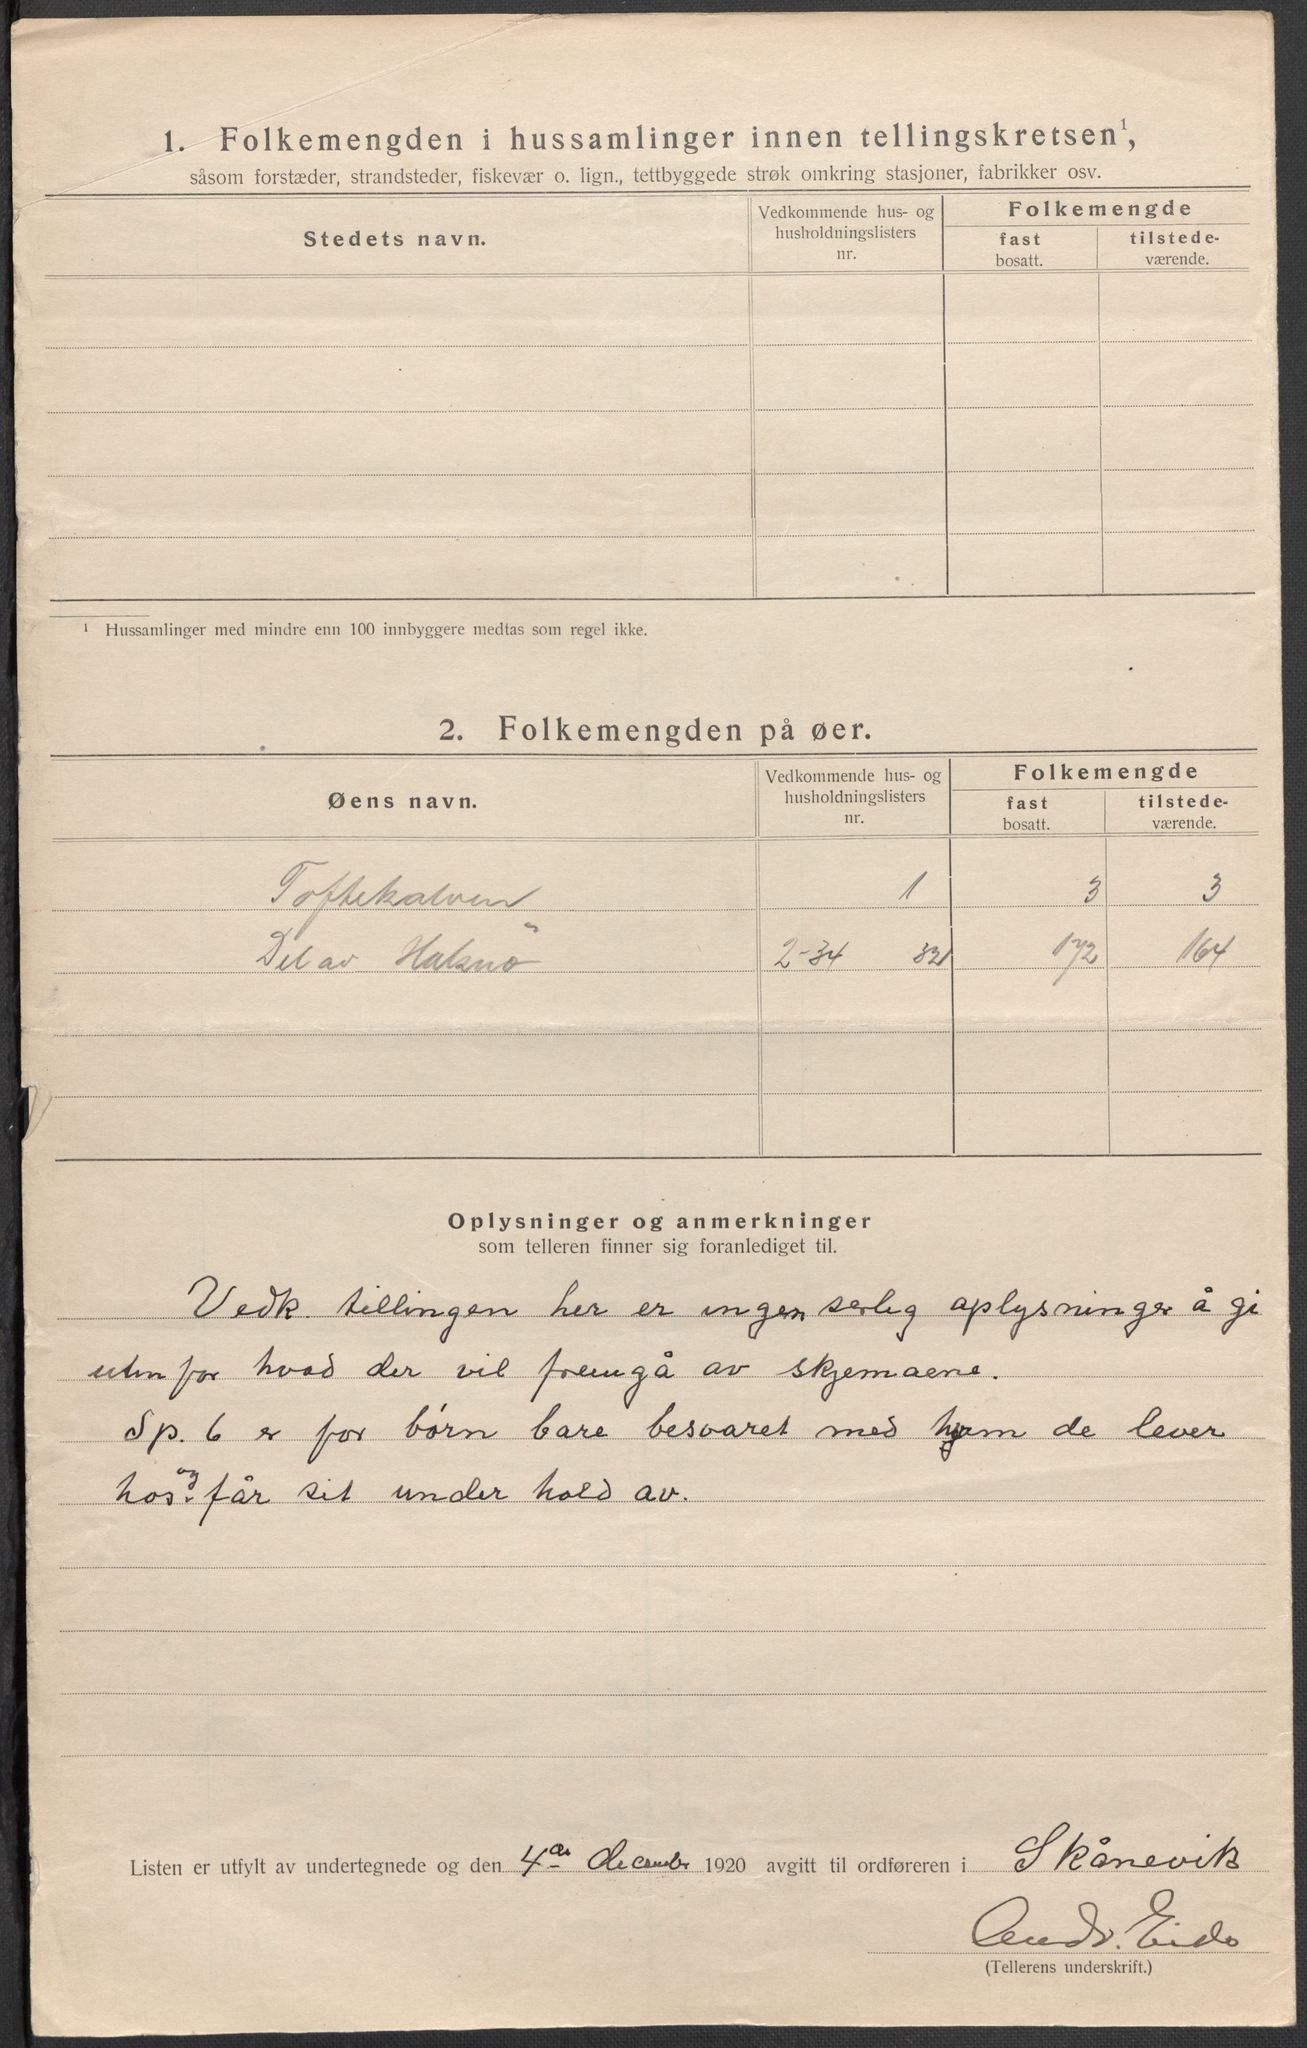 1. Folkemengden i hussamlinger innen tellingskretsen¹,
såsom forstæder, strandsteder, fiskevær o. lign., tettbyggede strøk omkring stasjoner, fabrikker osv.
Stedets navn.
Vedkommende hus- og
husholdningslisters
nr.
Folkemengde
fast
bosatt.
tilstede-
værende.
¹ Hussamlinger med mindre enn 100 innbyggere medtas som regel ikke.
2. Folkemengden på øer.
Øens navn.
Vedkommende hus- og
husholdningslisters
nr.
Folkemengde
fast
bosatt.
tilstede-
værende.
Toftekalven 1 3 3
Del av Halsnö 2-34 172 164
Oplysninger og anmerkninger
som telleren finner sig foranlediget til.
Vedk. tellingen her er ingen serlig oplysninger å gi
utenfor hvad der vil fremgå av skjemaene.
Sp. 6 er for børn bare besvaret med hvem de lever
hos og får sit under hold av.
Listen er utfylt av undertegnede og den 4de december 1920 avgitt til ordføreren i Skånevik
Andr. Eide
(Tellerens underskrift.)